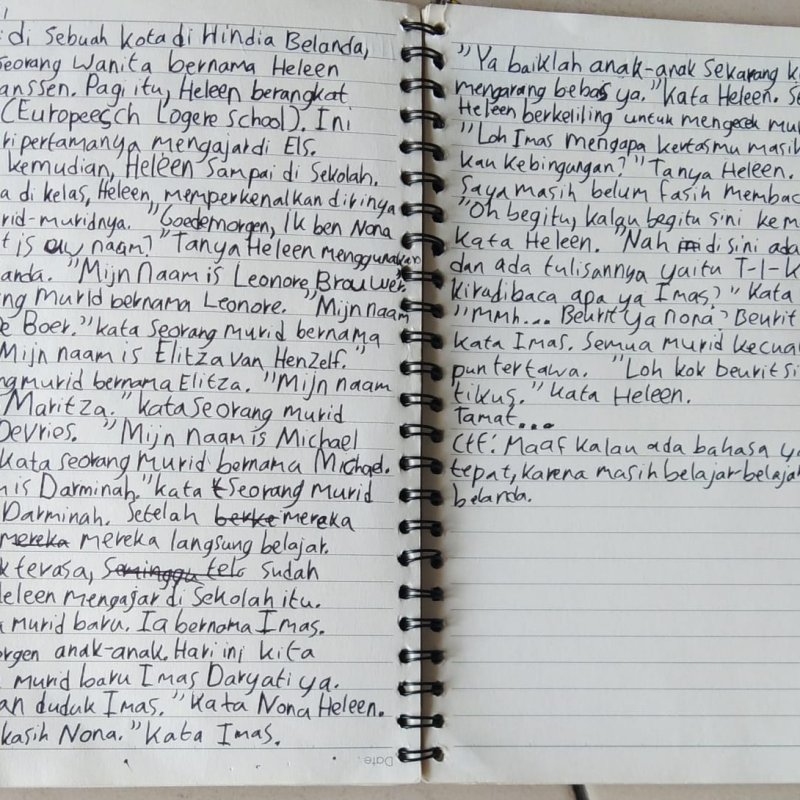 di Sebuah Kota di Hindia Belanda,
seorang Wanita bernama Heleen
anssen. Pagi itu, Heleen berangkat
(Europeesch Logere School). Ini
ri pertamanya mengajar di Els.
kemudian, Heleen Sampai di Sekolah.
a di kelas, Heleen, memperkenalkan dirinya
rid-muridnya. "Goedemorgen, Ik ben Nona
t is naam?" Tanya Heleen menggunakan
anda. "Mijn Naam is Leonore Brouwer.
ng murid bernama Leonore. "Mijn naam
e Boer." kata seorang murid bernama
Mijn naam is Elitza van Henzelf."
ng murid bernama Elitza. "Mijn naam
Maritza." kata seorang murid
DeVries. "Mijn Naam is Michael
kata seorang murid bernama Michael.
m is Darminah." kata seorang murid
Darminah. Setelah berke mereka
mereka mereka langsung belajar.
k terasa, Seminggu telo sudah
Heleen mengajar di Sekolah itu.
murid baru. Ia bernama Imas.
orgen anak-anak. Hari ini kita
murid baru Imas Daryati ya.
an duduk Imas." Kata Nona Heleen.
kasih Nona." Kata Imas.
Date.
"Ya baiklah anak-anak Sekarang k
mengarang bebas ya." Kata Heleen. S
Heleen berkeliling untuk mengecek mu
"Loh Imas mengapa kertasmu masih
kau kebingungan?" Tanya Heleen.
Saya masih belum fasih membac
"Oh begitu, kalau begitu sini kem
kata Heleen. "Nah di sini ada
dan ada tulisannya yaitu T-I-K
kira dibaca apa ya Imas?" Kata
"Mmh... Beurit ya nona? Beurit
kata Imas. Semua murid kecua
pun tertawa. "Loh kok beurit si
tikus." Kata Heleen.
Tamat...
Ctt: Maaf kalau ada bahasa ya
tepat, karena masih belajar-belaja
belanda.